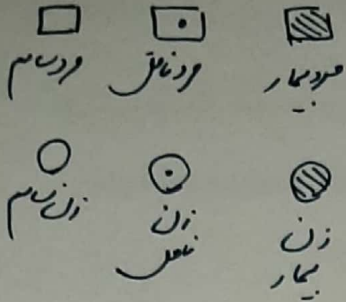 مرد بیمار
مرد ناقل
مرد سالم
زن
بیمار
زن
ناقل
زن سالم